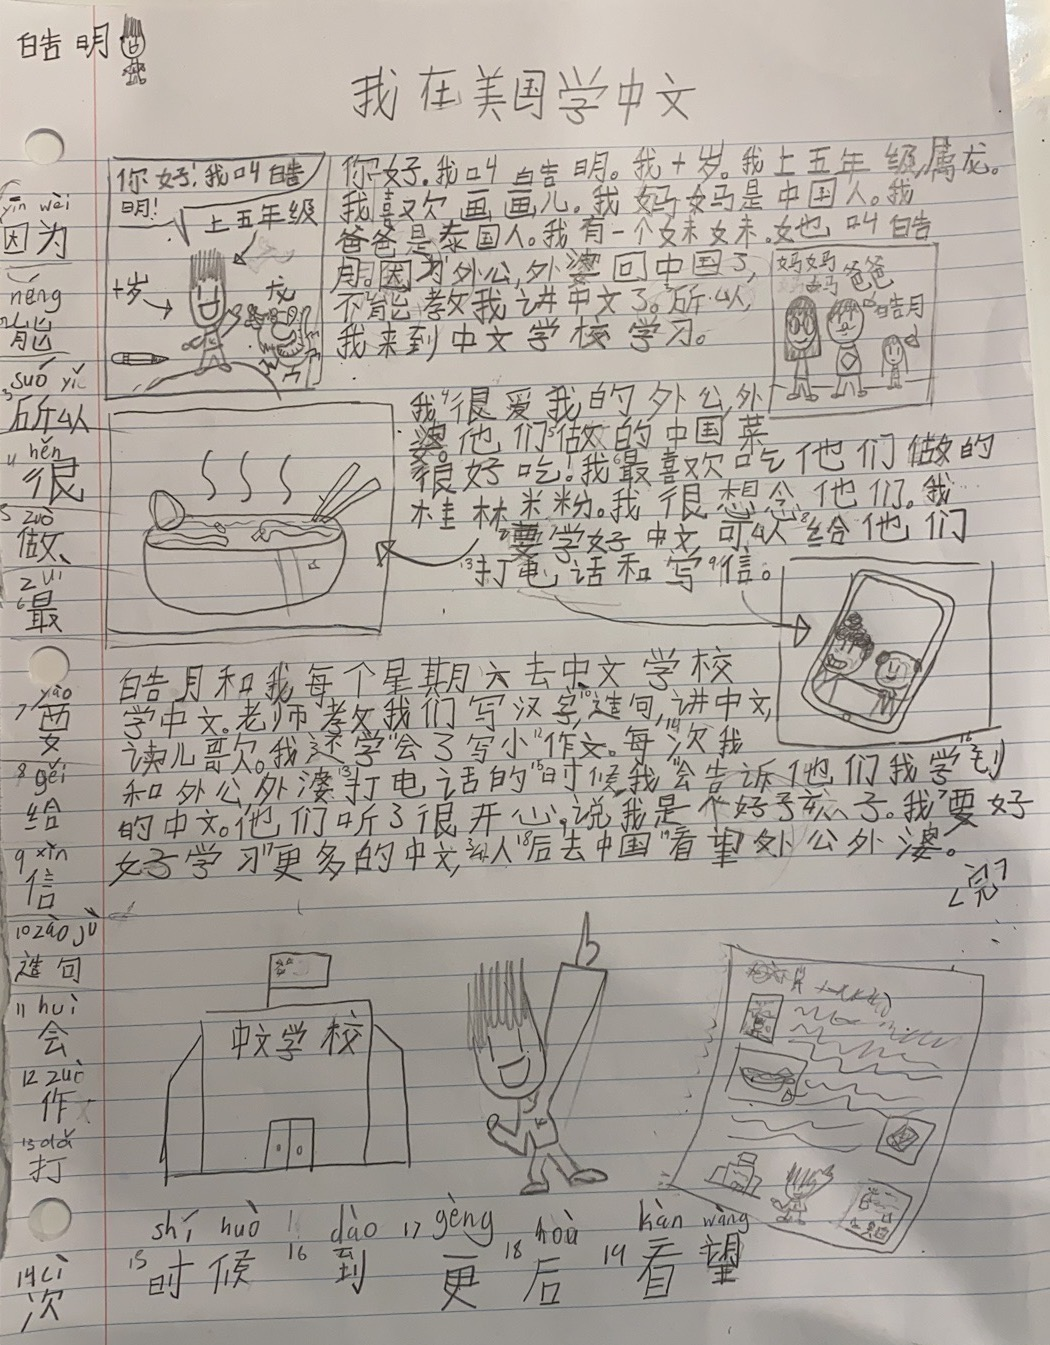 皓明
我在美国学中文
你好!我叫皓
明!
上五年级
十岁
龙
你好。我叫皓明。我十岁。我上五年级,属龙。
我喜欢画画儿。我妈妈是中国人。我
爸爸是泰国人。我有一个妹妹。她也叫皓
月。因为外公,外婆回中国了,
不能教我讲中文了。所以,
我来到中文学校学习。
妈妈
爸爸
皓月
我很爱我的外公,外
婆。他们做的中国菜
很好吃!我最喜欢吃他们做的
桂林米粉。我很想念他们。我
要学好中文可以给他们
打电话和写信。
皓月和我每个星期六去中文学校
学中文。老师教我们写汉字,造句,讲中文,
读儿歌。我还学会了写小作文。每次我
和外公外婆打电话的时候,我会告诉他们我学到
的中文。他们听了很开心,说我是个好孩子。我要好
好学习更多的中文,以后去中国看望外公外婆。
<完>
yīn wèi
因为
néng
能
suó yǐ
3 所以
hěn
4 很
5 zuò
做
zuì
6 最
yào
7 要
8 gěi
给
9 xìn
信
10 zào jù
造句
11 huì
会
12 zuò
作
13 dǎ
打
14 cì
次
中文学校
shí huò dào gèng hòu kàn wàng
15 时候 16 到 17 更 18 后 19 看望